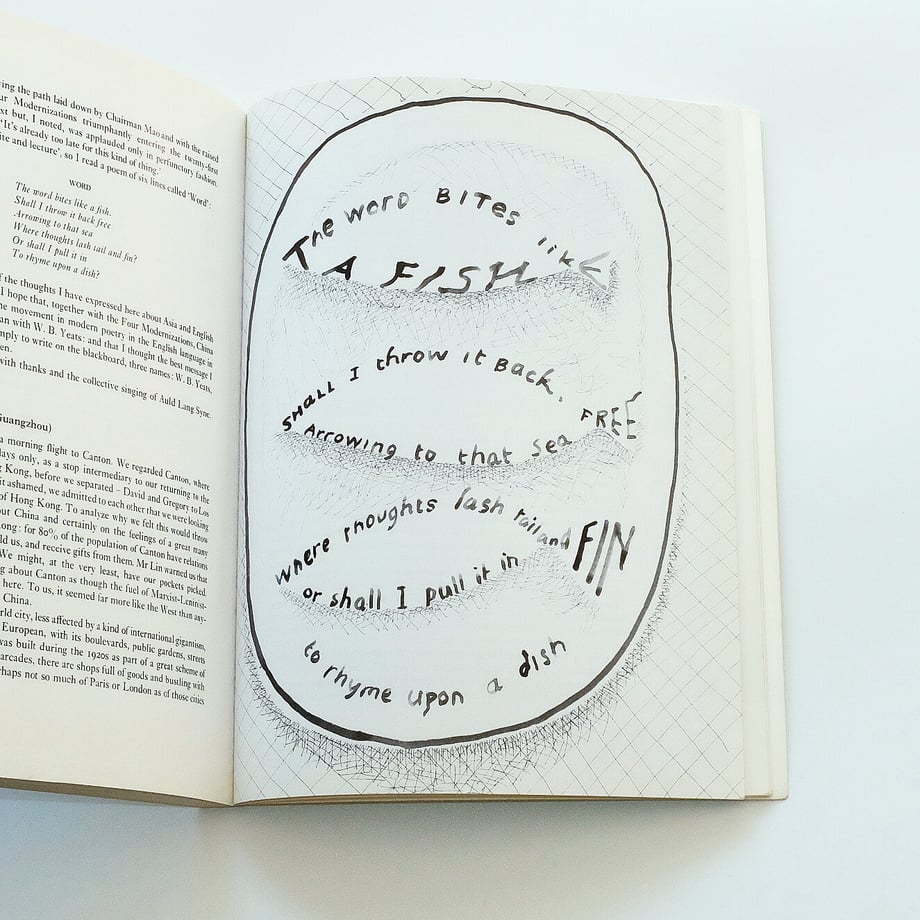 ing the path laid down by Chairman Mao and with the raised
ur Modernizations triumphantly entering the twenty-first
xt but, I noted, was applauded only in perfunctory fashion.
'It's already too late for this kind of thing.'
ite and lecture', so I read a poem of six lines called 'Word':
WORD
The word bites like a fish.
Shall I throw it back free
Arrowing to that sea
Where thoughts lash tail and fin?
Or shall I pull it in
To rhyme upon a dish?
f the thoughts I have expressed here about Asia and English
I hope that, together with the Four Modernizations, China
e movement in modern poetry in the English language in
an with W. B. Yeats: and that I thought the best message I
mply to write on the blackboard, three names: W. B. Yeats,
en.
with thanks and the collective singing of Auld Lang Syne.
Guangzhou)
a morning flight to Canton. We regarded Canton, where
ays only, as a stop intermediary to our returning to the
g Kong, before we separated – David and Gregory to Los
it ashamed, we admitted to each other that we were looking
of Hong Kong. To analyze why we felt this would throw
out China and certainly on the feelings of a great many
ong: for 80% of the population of Canton have relations
ld us, and receive gifts from them. Mr Lin warned us that
We might, at the very least, have our pockets picked.
g about Canton as though the fuel of Marxist-Leninist-
here. To us, it seemed far more like the West than any-
China.
rld city, less affected by a kind of international gigantism,
European, with its boulevards, public gardens, streets
was built during the 1920s as part of a great scheme of
arcades, there are shops full of goods and bustling with
rhaps not so much of Paris or London as of those cities
The word BITes like
A FISH
SHALL I throw it Back, FREE
Arrowing to that sea
where thoughts lash tail and FIN
or shall I pull it in
to rhyme upon a dish